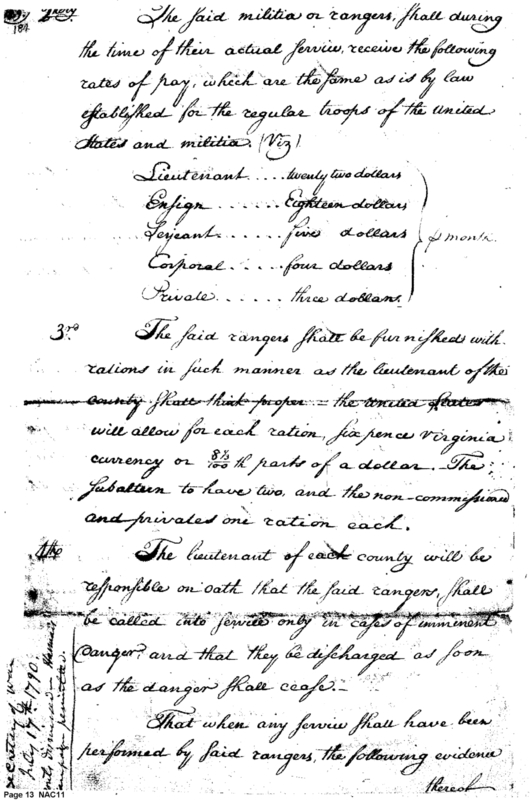 The said militia or rangers, shall during
the time of their actual service, receive the following
rates of pay, which are the same as is by law
established for the regular troops of the United
States and militia. (Viz)
Lieutenant .... twenty two dollars
Ensign ...... Eighteen dollars
Serjeant ...... five dollars
Corporal ..... four dollars
Private ...... three dollars.
month.
3rd The said rangers shall be furnished with
rations in such manner as the lieutenant of the
county shall think proper = the United States
will allow for each ration, six pence Virginia
currency or 8⅓/100 th parts of a dollar. The
subaltern to have two, and the non-commissioned
and privates one ration each.
4th The lieutenant of each county will be
responsible on oath that the said rangers, shall
be called into service only in cases of imminent
danger, and that they be discharged as soon
as the danger shall cease.-
That when any service shall have been
performed by said rangers, the following evidence
thereof
Secretary of War
July 17th 1790.
Page 13 NAC11